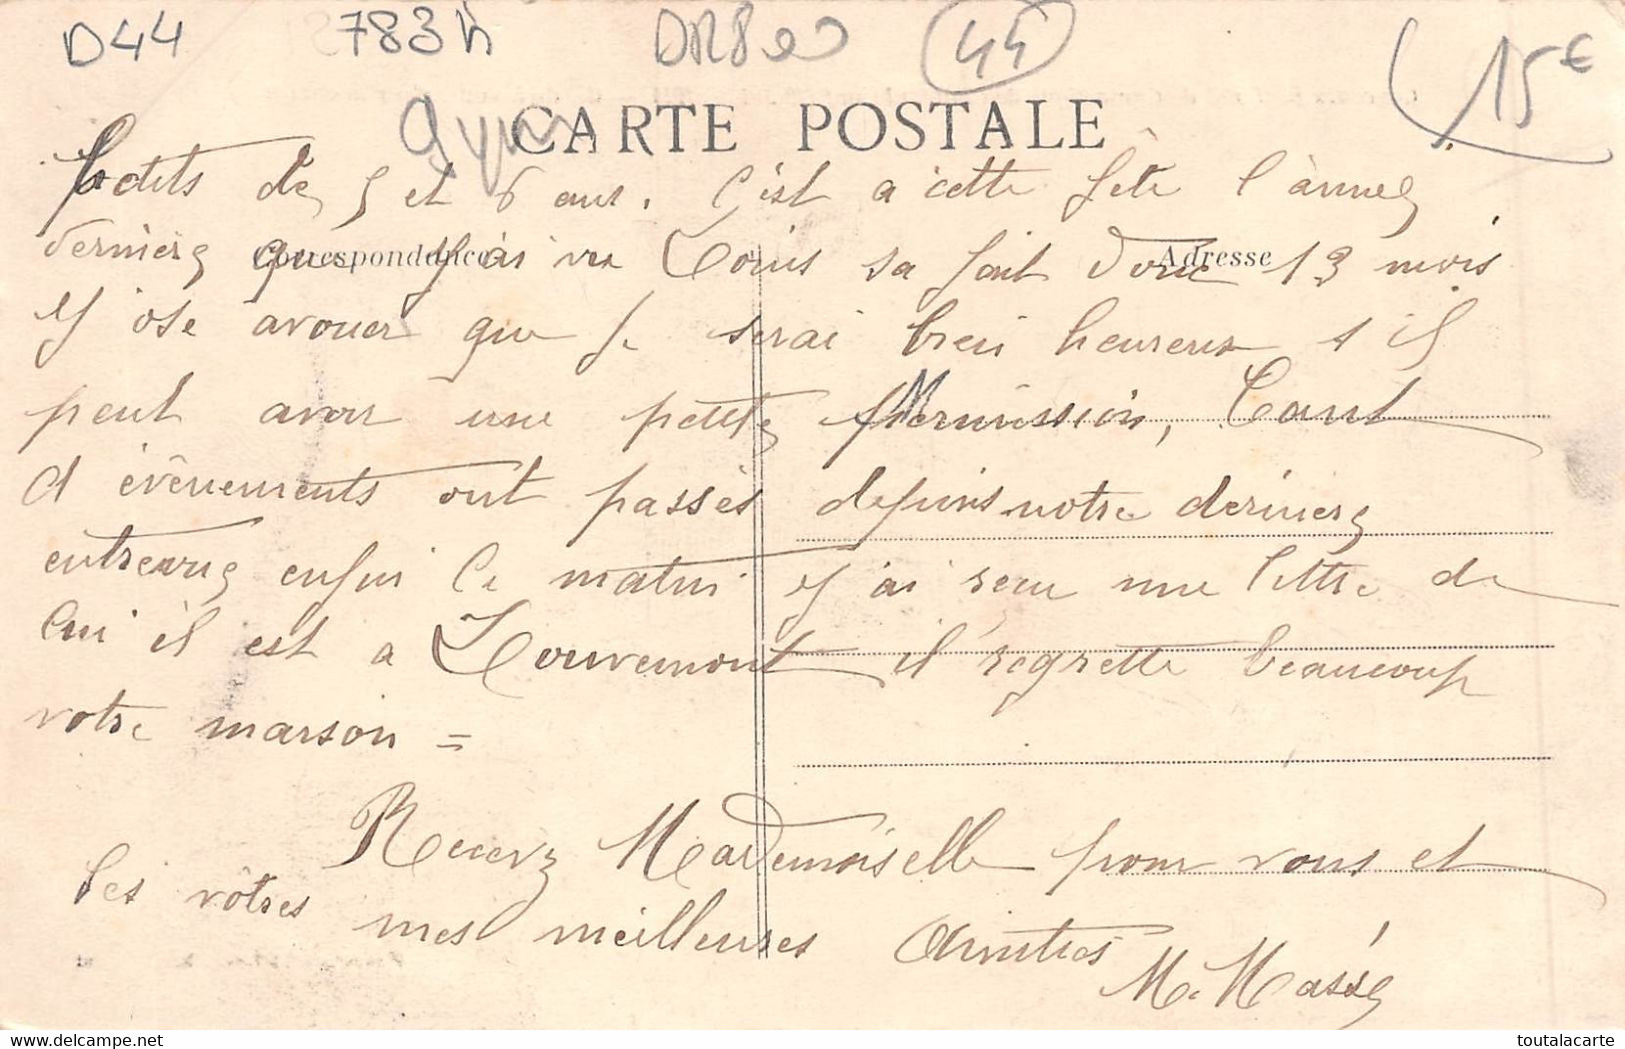 D44 783h DR8 44 15€
gym
CARTE POSTALE
Petits de 5 et 6 ans. C'est a cette fête l'année
Correspondance Adresse
dernière que j'ais vu Louis sa fait donc 13 mois
j'ose avouer que je serai bien heureux s'il
peut avoir une petite permission, Tant
d'évênements ont passés depuis notre dernière
entrevue enfin ce matin j'ai reçu une lettre de
lui il est a Louvemont il regrette beaucoup
votre maison =
Recevez Mademoiselle pour vous et
les vôtres mes meilleures Amitiés
M. Massé
delcampe.net
toutalacarte